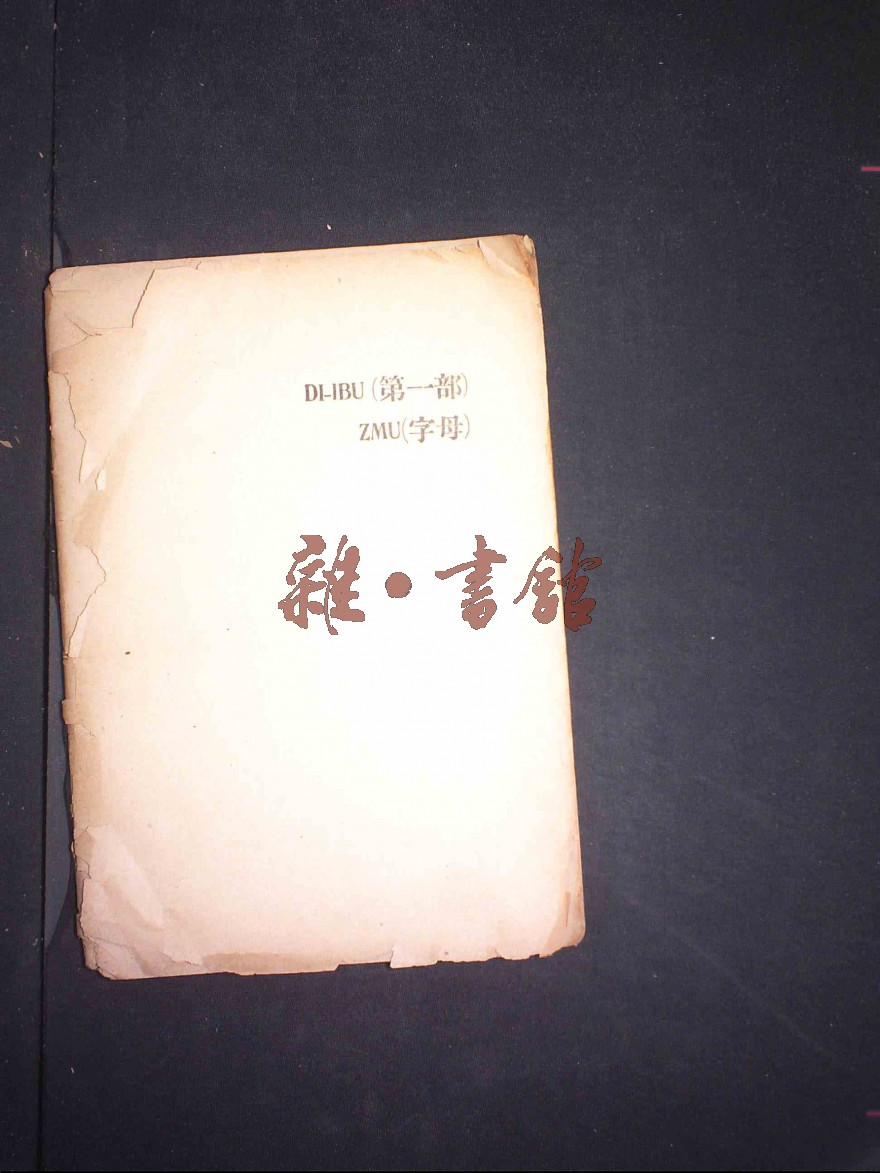 DI-IBU (第一部)
ZMU(字母)
雜·書館